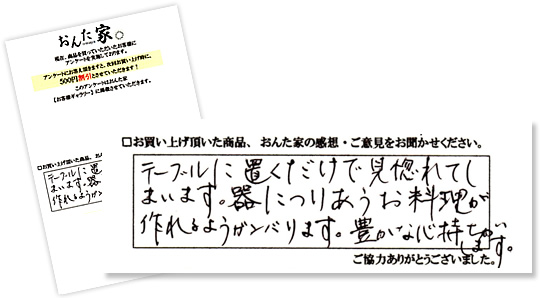 おんた家
現在、商品を買っていただいたお客様に
アンケートを実施しております。
アンケートにお答え頂きますと、次回お買い上げ時に、
500円割引とさせていただきます！
このアンケートはおんた家
【お客様ギャラリー】に掲載させていただきます。
□お買い上げ頂いた商品、おん
テーブルに置
まいます。器
作れるようがン
□お買い上げ頂いた商品、おんた家の感想・ご意見をお聞かせください。
テーブルに置くだけで見惚れてし
まいます。器につりあうお料理が
作れるようがンバります。豊かな心持ちがします。
ご協力ありがとうございました。